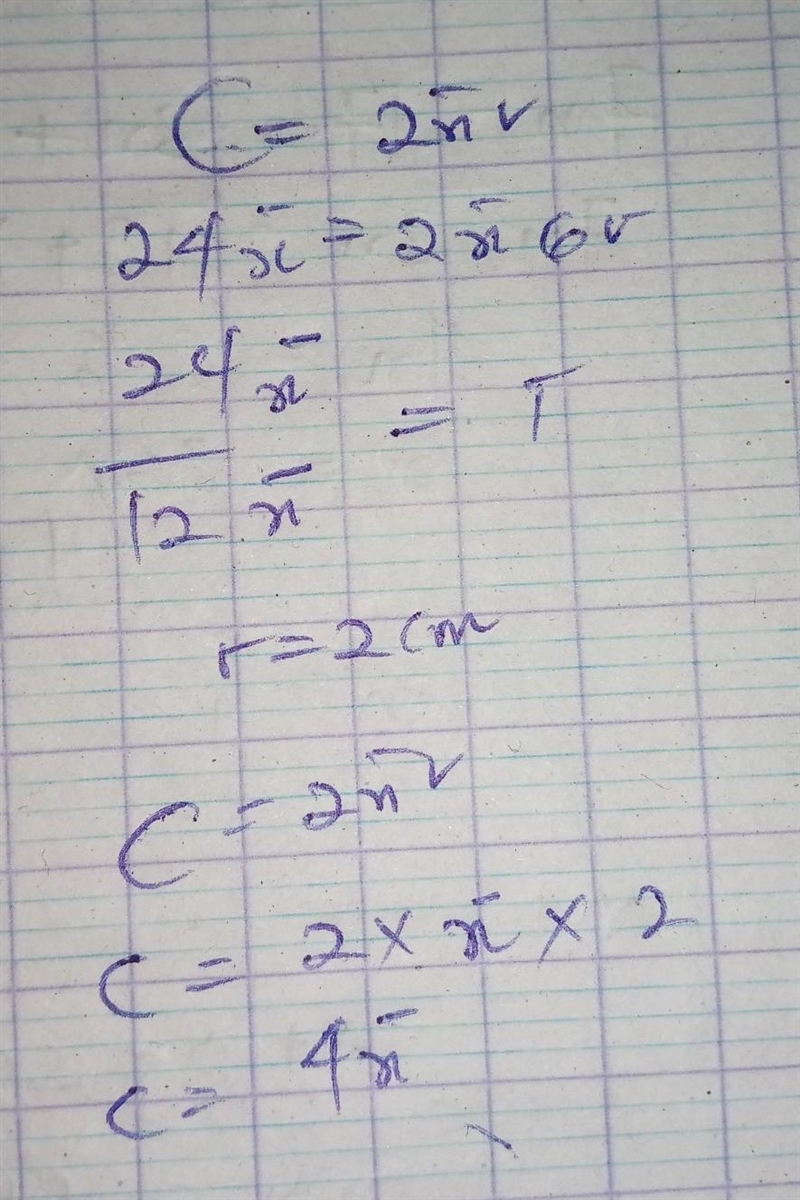 C = 2πr
24π = 2π6r
24π
12π
= r
r = 2cm
C = 2πr
C = 2 × π × 2
C = 4π